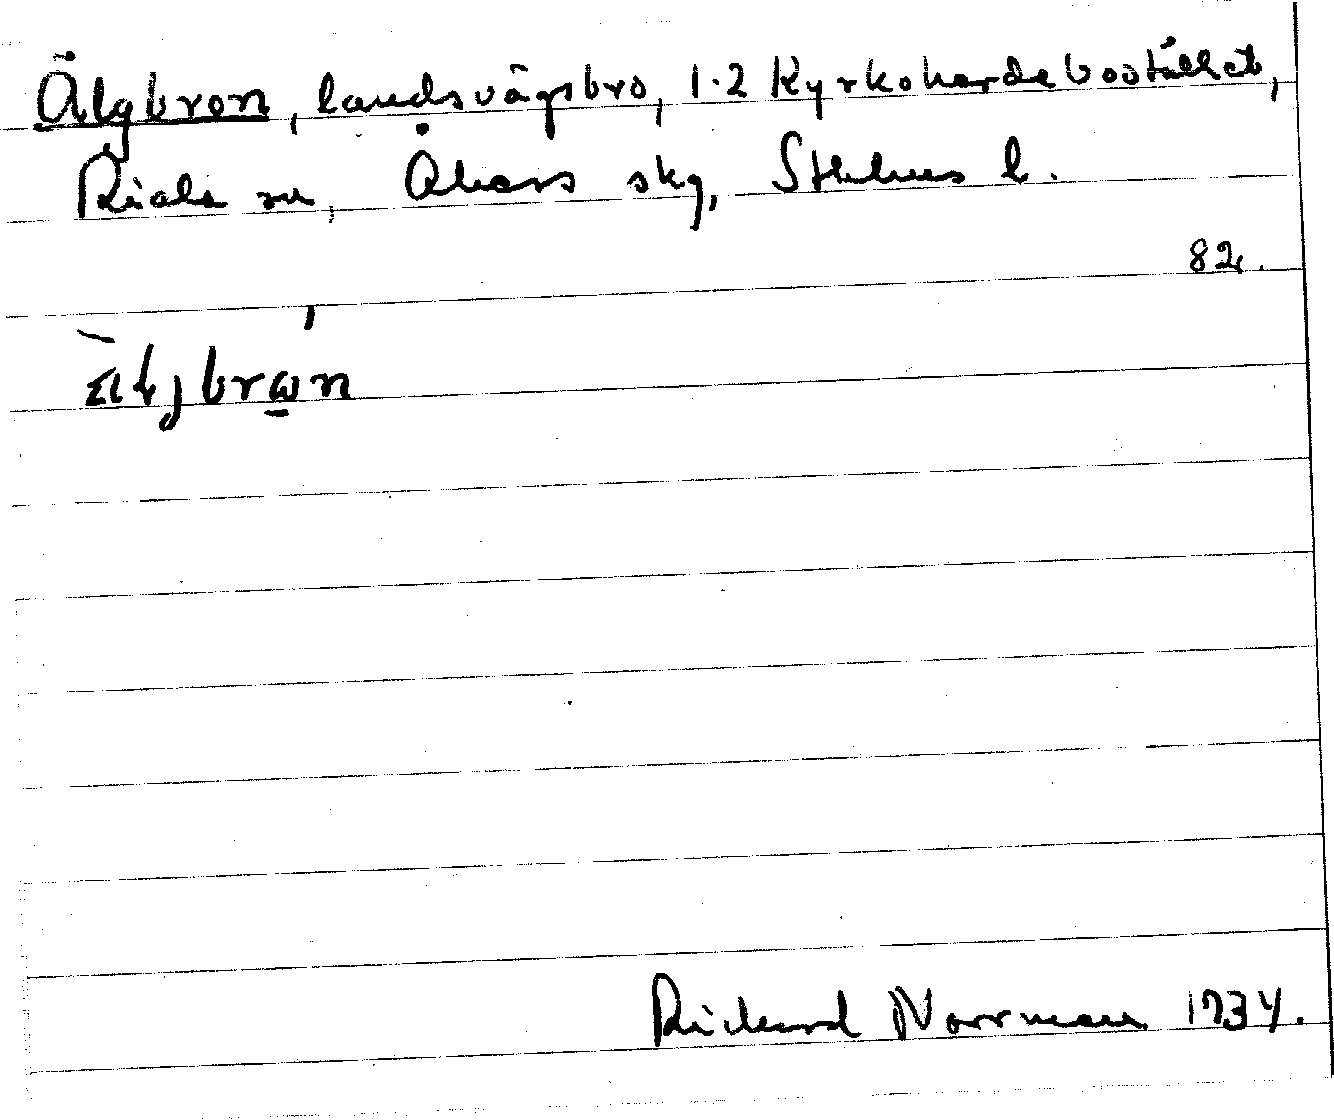 Älgbron, landsvägsbro, 1.2 Kyrkoherdebostället,
Riala sn, Åkers skg, Sthlms l.
82.
Rickard Norrman 1934.